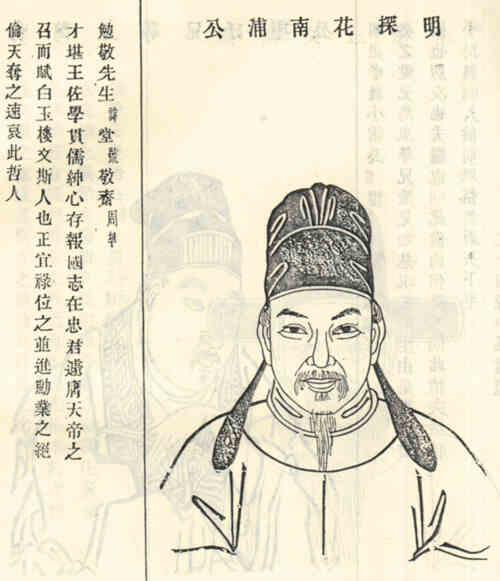 明探花南浦公
勉敬先生諱堂號敬齋周學
才堪王佐學貫儒紳心存報國志在忠君遽膺天帝之
召而賦白玉樓文斯人也正宜祿位之並進勳業之絕
倫天奪之速哀此哲人